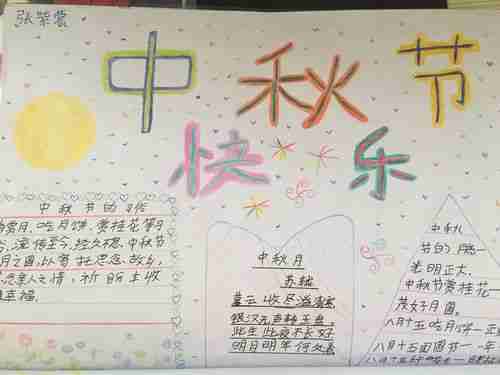 张
中秋节
快乐
中秋节的
赏月、吃月饼、赏桂花等
流传至今,经久不息。中秋节
月之圆
思念故乡,
念亲人之情,祈盼
幸福。
中秋月
苏轼
暮云收尽溢清寒
银汉无声转玉盘
此生此夜不长好
明月明年何处看
中秋
节的
光明正大。
中秋节赏桂花一
花好月圆。
八月十五吃月饼一
八月十五团圆节一一年
八月十五